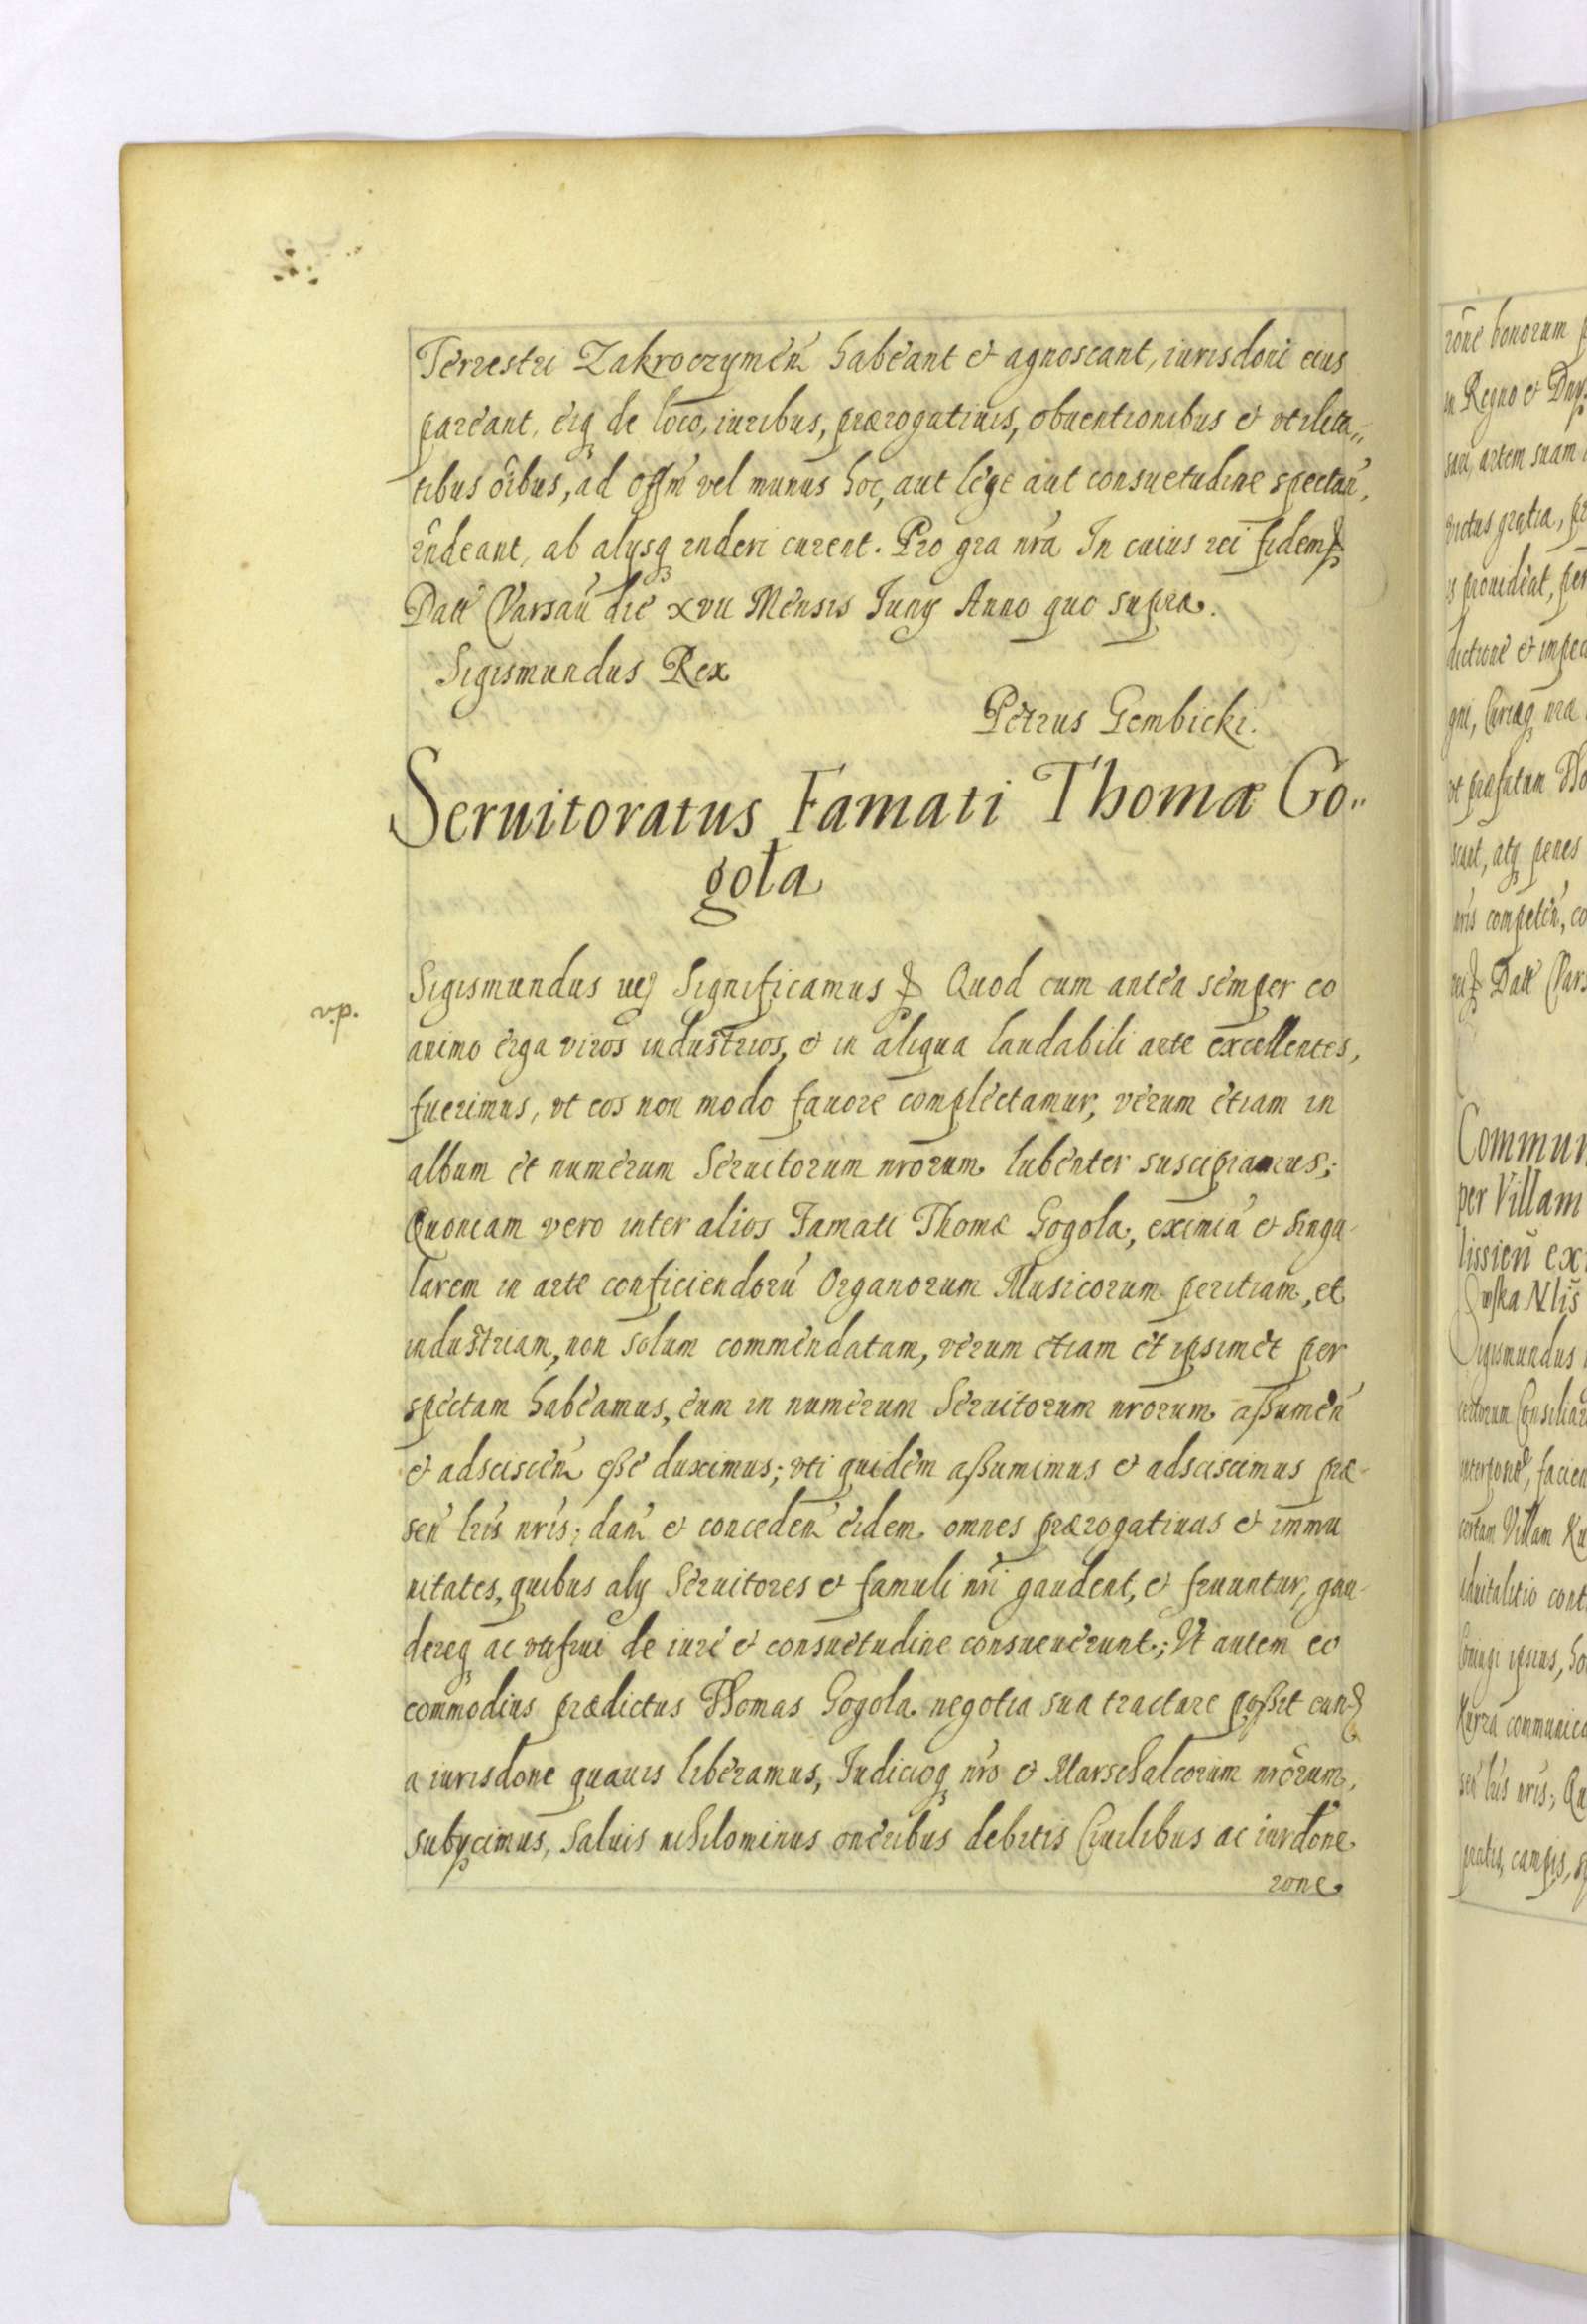 Terrestri Zakroczymen̄ habeant et agnoscant, iurisdoni eius
pareant, eiq̨ de loco, iuribus, prærogatiuis, obuentionibus et vtilita„
tibus oībus, ad offm̄ vel munus hoc, aut lege aut consuetudine spectan̄,
rn̄deant, ab alysq̨ rnderi curent. Pro gra nrā In cuius rei fidem
Datt Varsau̅ die xvii Mensis Juny Anno quo supra.
Sigismundus Rex
Petrus Gembicki.
Seruitoratus Famati Thomæ Go„
gola
v.p.
Sigismundus Significamus Quod cum antea semper eo
animo erga viros industrios, et in aliqua laudabili arte excellentes,
fuerimus, vt eos non modo fauore complectamur, verum etiam in
album et numerum Seruitorum nrorum lubenter suscipiamus;
Quoniam vero inter alios Famati Thomæ Gogola, eximiā et singu-
larem in arte conficiendorū Organorum Musicorum peritiam, et
industriam, non solum commendatam, verum etiam et ipsimet per
spectam habeamus, eum in numerum Seruitorum nrorum assumen̄
et adsciscen̄ esse duximus; vti quidem assumimus et adsciscimus præ-
sen̄ lris nris; dan̄ et conceden̄ eidem omnes prærogatiuas et immu
nitates, quibus aly Seruitores et famuli nri gaudent, et fruuntur, gau-
dereq̨ ac vtifrui de iure et consuetudine consueuerunt; Vt autem eo
commodius prædictus Thomas Gogola negotia sua tractare possit eund
a iurisdone quauis liberamus, Iudicioq̨ nro et Marschalcorum nrorum,
subycimus, Saluis nihilominus oneribus debitis Ciuilibus ac iurdone
rone
rone bonorum
in Regno et
artem suam
victus gratia,
prouideat,
dictione et
nra
vt præfatum
atq̨ penes
competen̄,
Datt
Commun
per Villam
ex
Nlis
Sigismundus
Consiliar
certam Villam
cont
ipsius,
lris nris;
pratis, campis,